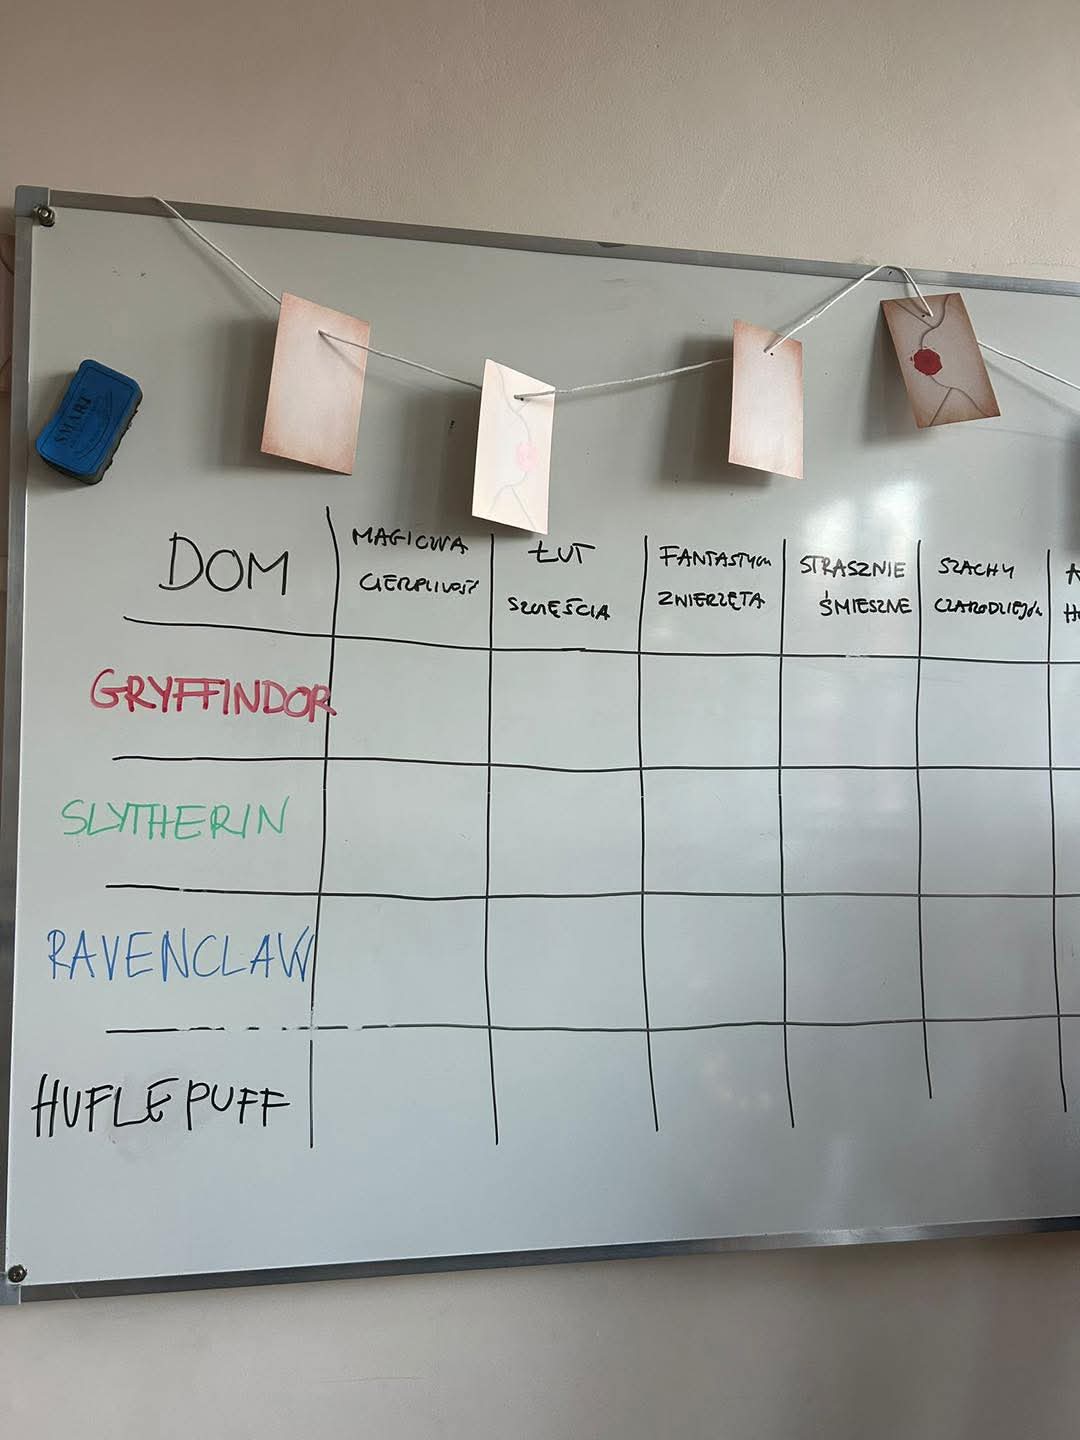 SMART
DOM
MAGICZNA
CIERPLIWOŚĆ
ŁUT
SZCZĘŚCIA
FANTASTYCZN
ZWIERZĘTA
STRASZNIE
ŚMIESZNE
SZACHY
CZARODZIEJÓW
GRYFFINDOR
SLYTHERIN
RAVENCLAW
HUFLEPUFF